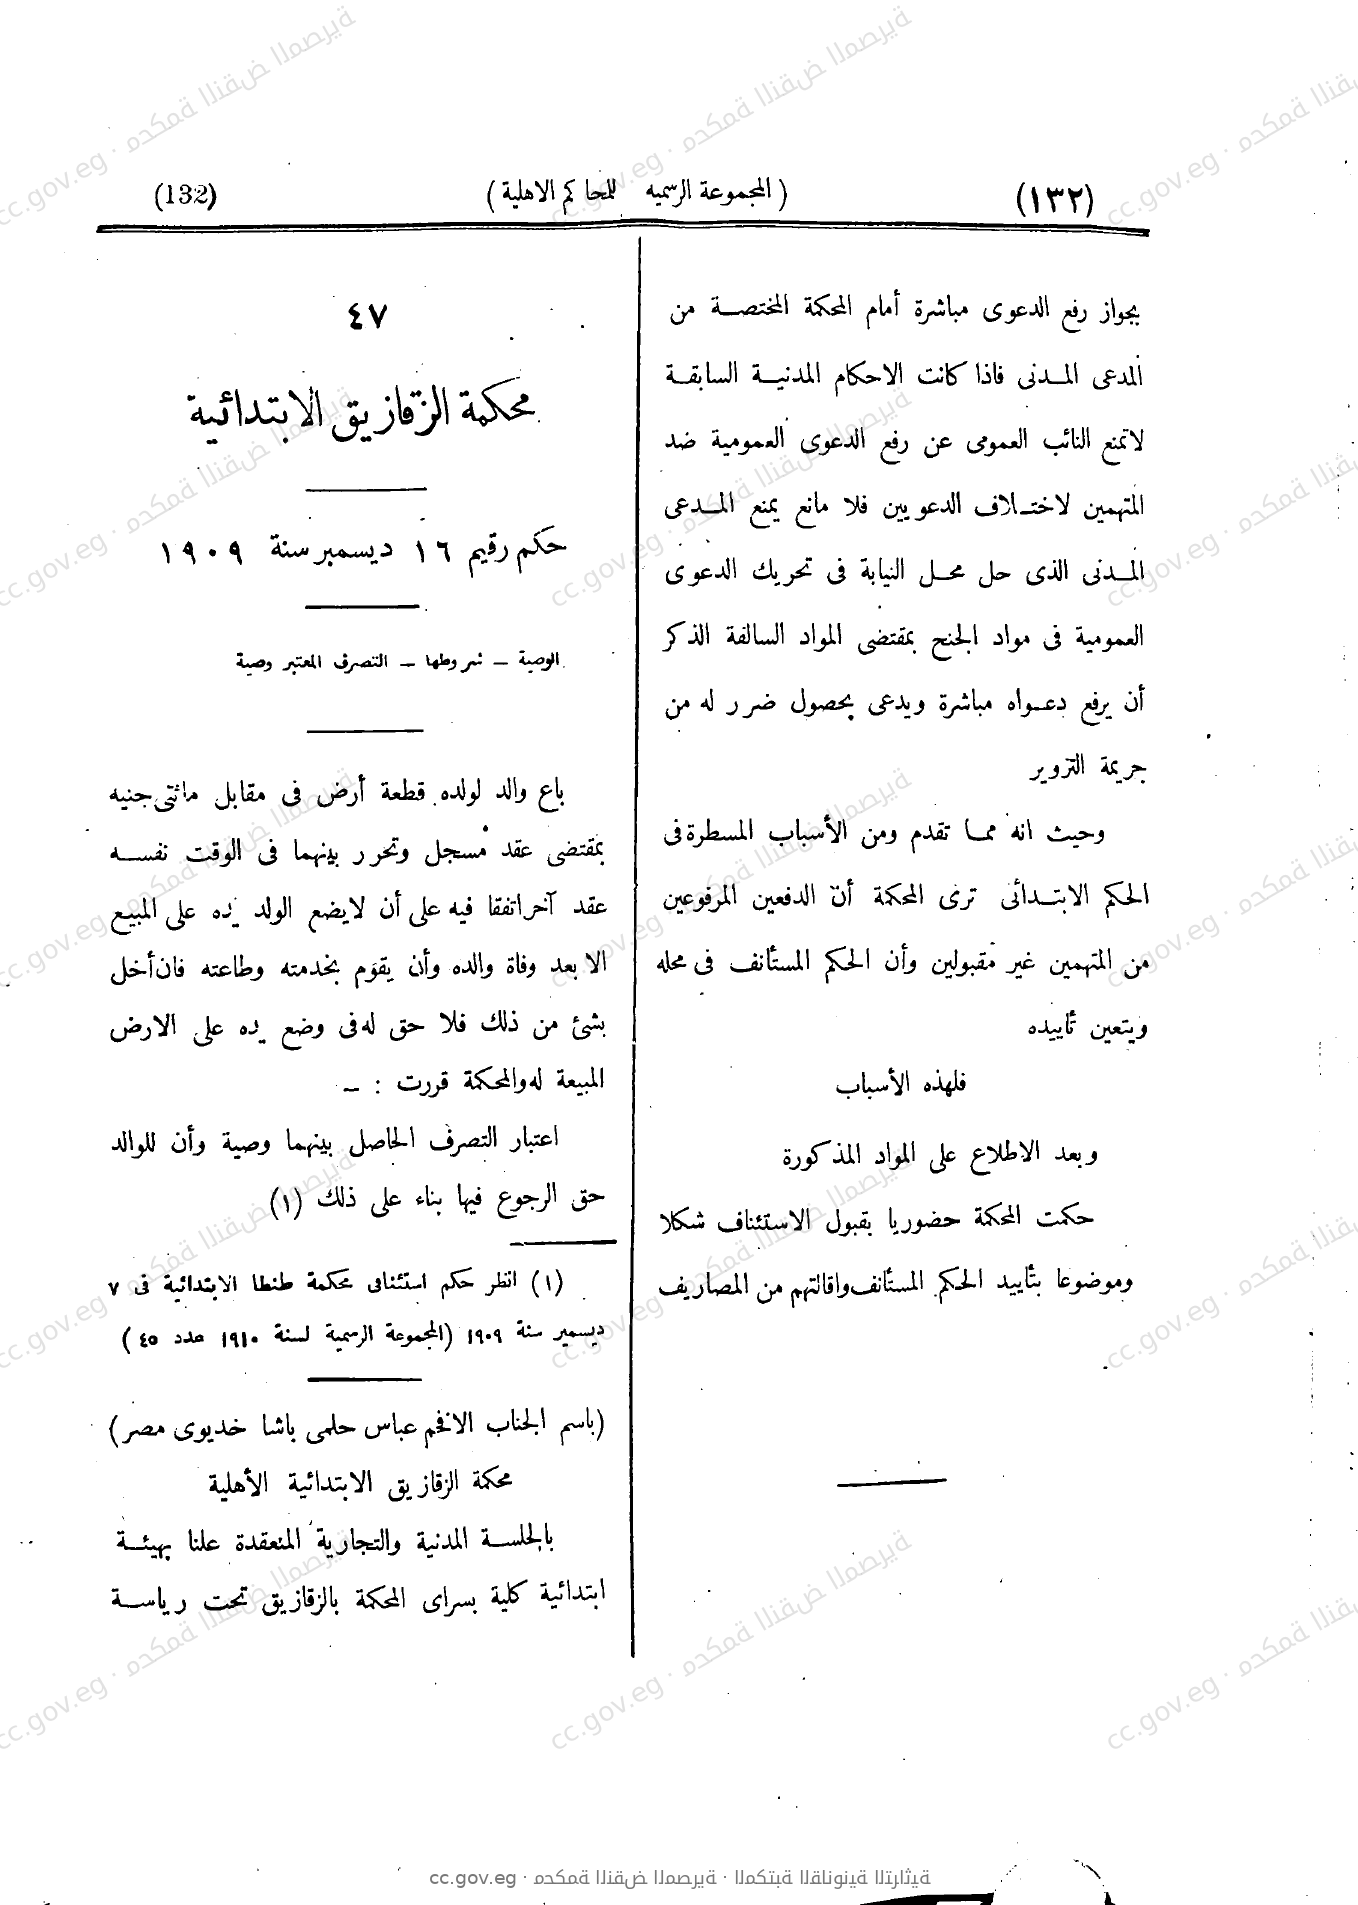 (١٣٢)
( المجموعة الرسميه للمحاكم الاهلية )
(132)
بجواز رفع الدعوى مباشرة أمام المحكمة المختصة من
المدعى المدنى فاذا كانت الاحكام المدنية السابقة
لاتمنع النائب العمومى عن رفع الدعوى العمومية ضد
المتهمين لاختلاف الدعويين فلا مانع يمنع المدعى
المدنى الذى حل محل النيابة فى تحريك الدعوى
العمومية فى مواد الجنح بمقتضى المواد السالفة الذكر
أن يرفع دعواه مباشرة ويدعى بحصول ضرر له من
جريمة التزوير
وحيث انه مما تقدم ومن الأسباب المسطرة فى
الحكم الابتدائى ترى المحكمة أن الدفعين المرفوعين
من المتهمين غير مقبولين وأن الحكم المستأنف فى محله
ويتعين تأييده
فلهذه الأسباب
وبعد الاطلاع على المواد المذكورة
حكمت المحكمة حضوريا بقبول الاستئناف شكلا
وموضوعا بتأييد الحكم المستأنف واقالتهم من المصاريف
٤٧
محكمة الزقازيق الابتدائية
حكم رقيم ١٦ ديسمبر سنة ١٩٠٩
الوصية – شروطها – التصرف المعتبر وصية
باع والد لولده قطعة أرض فى مقابل مائتى جنيه
بمقتضى عقد مسجل وتحرر بينهما فى الوقت نفسه
عقد آخر اتفقا فيه على أن لايضع الولد يده على المبيع
الا بعد وفاة والده وأن يقوم بخدمته وطاعته فان أخل
بشئ من ذلك فلا حق له فى وضع يده على الارض
المبيعة له والمحكمة قررت : –
اعتبار التصرف الحاصل بينهما وصية وأن للوالد
حق الرجوع فيها بناء على ذلك (١)
(١) انظر حكم استئنافى محكمة طنطا الابتدائية فى ٧
ديسمبر سنة ١٩٠٩ (المجموعة الرسمية لسنة ١٩١٠ عدد ٤٥ )
(باسم الجناب الافخم عباس حلمى باشا خديوى مصر)
محكمة الزقازيق الابتدائية الأهلية
بالجلسة المدنية والتجارية المنعقدة علنا بهيئة
ابتدائية كلية بسراى المحكمة بالزقازيق تحت رياسة
cc.gov.eg · محكمة النقض المصرية · المكتبة القانونية التراثية